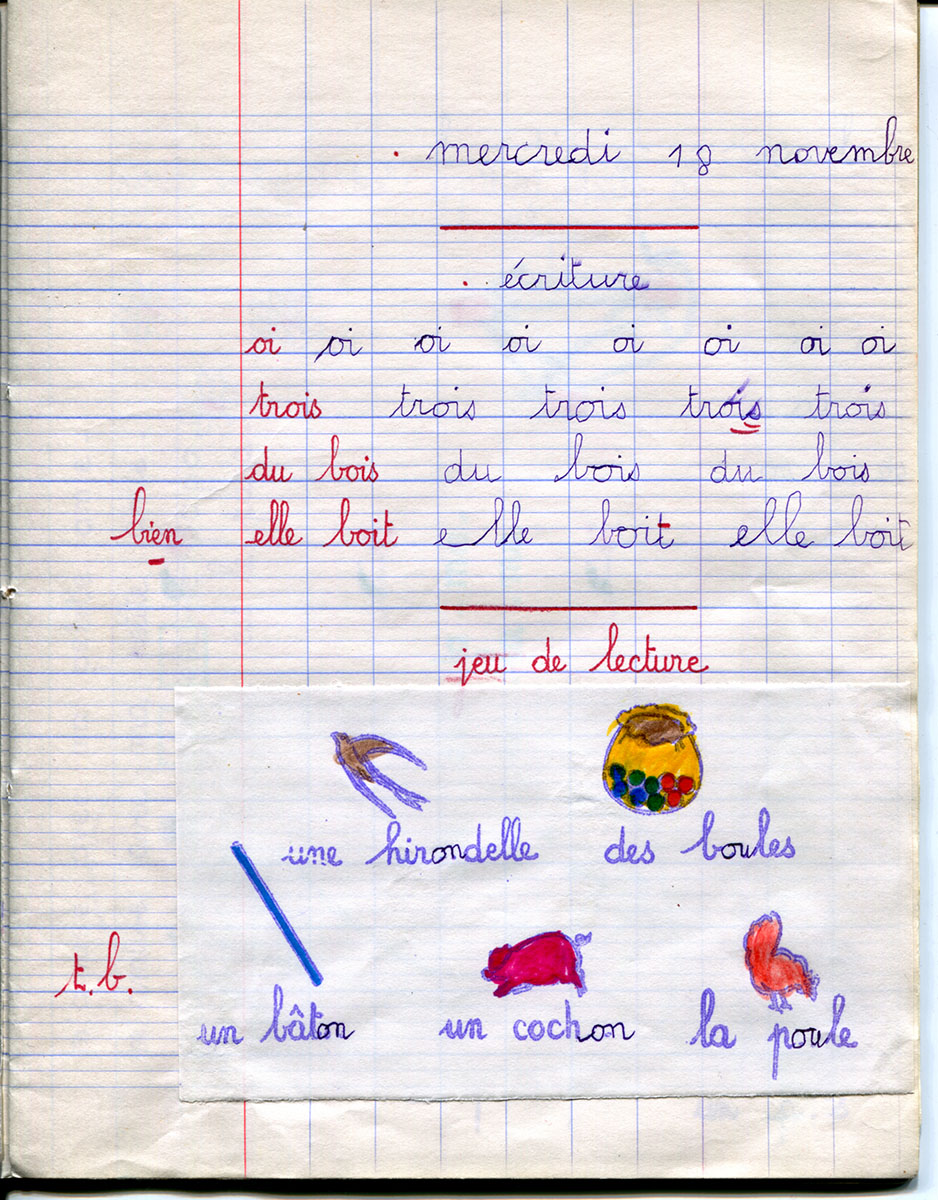 mercredi 18 novembre
écriture
oi oi oi oi oi oi oi oi
trois trois trois trois trois
du bois du bois du bois
bien elle boit elle boit elle boit
jeu de lecture
une hirondelle des boules
t.b.
un bâton un cochon la poule